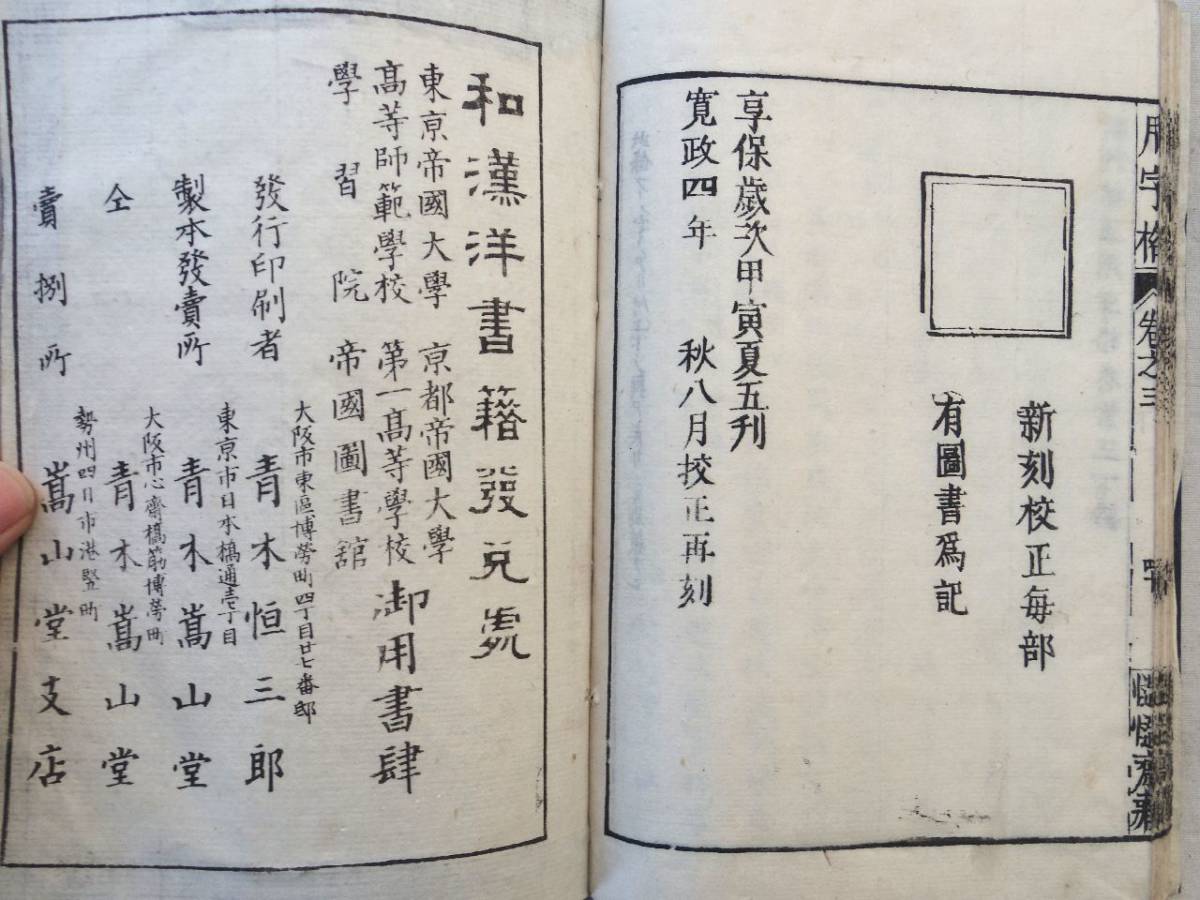 用字格
卷之三
新刻校正每部
有圖書爲記
享保歲次甲寅夏五刊
寬政四年　秋八月挍正再刻
和漢洋書籍發兌處
東京帝國大學　京都帝國大學
高等師範學校　第一高等學校
學習院　帝國圖書館
御用書肆
大阪市東區博勞町四丁目廿七番邸
發行印刷者　青木恒三郎
東京市日本橋通壱丁目
製本發賣所　青木嵩山堂
大阪市心齋橋筋博勞町
仝　青木嵩山堂
勢州四日市港竪町
賣捌所　嵩山堂支店